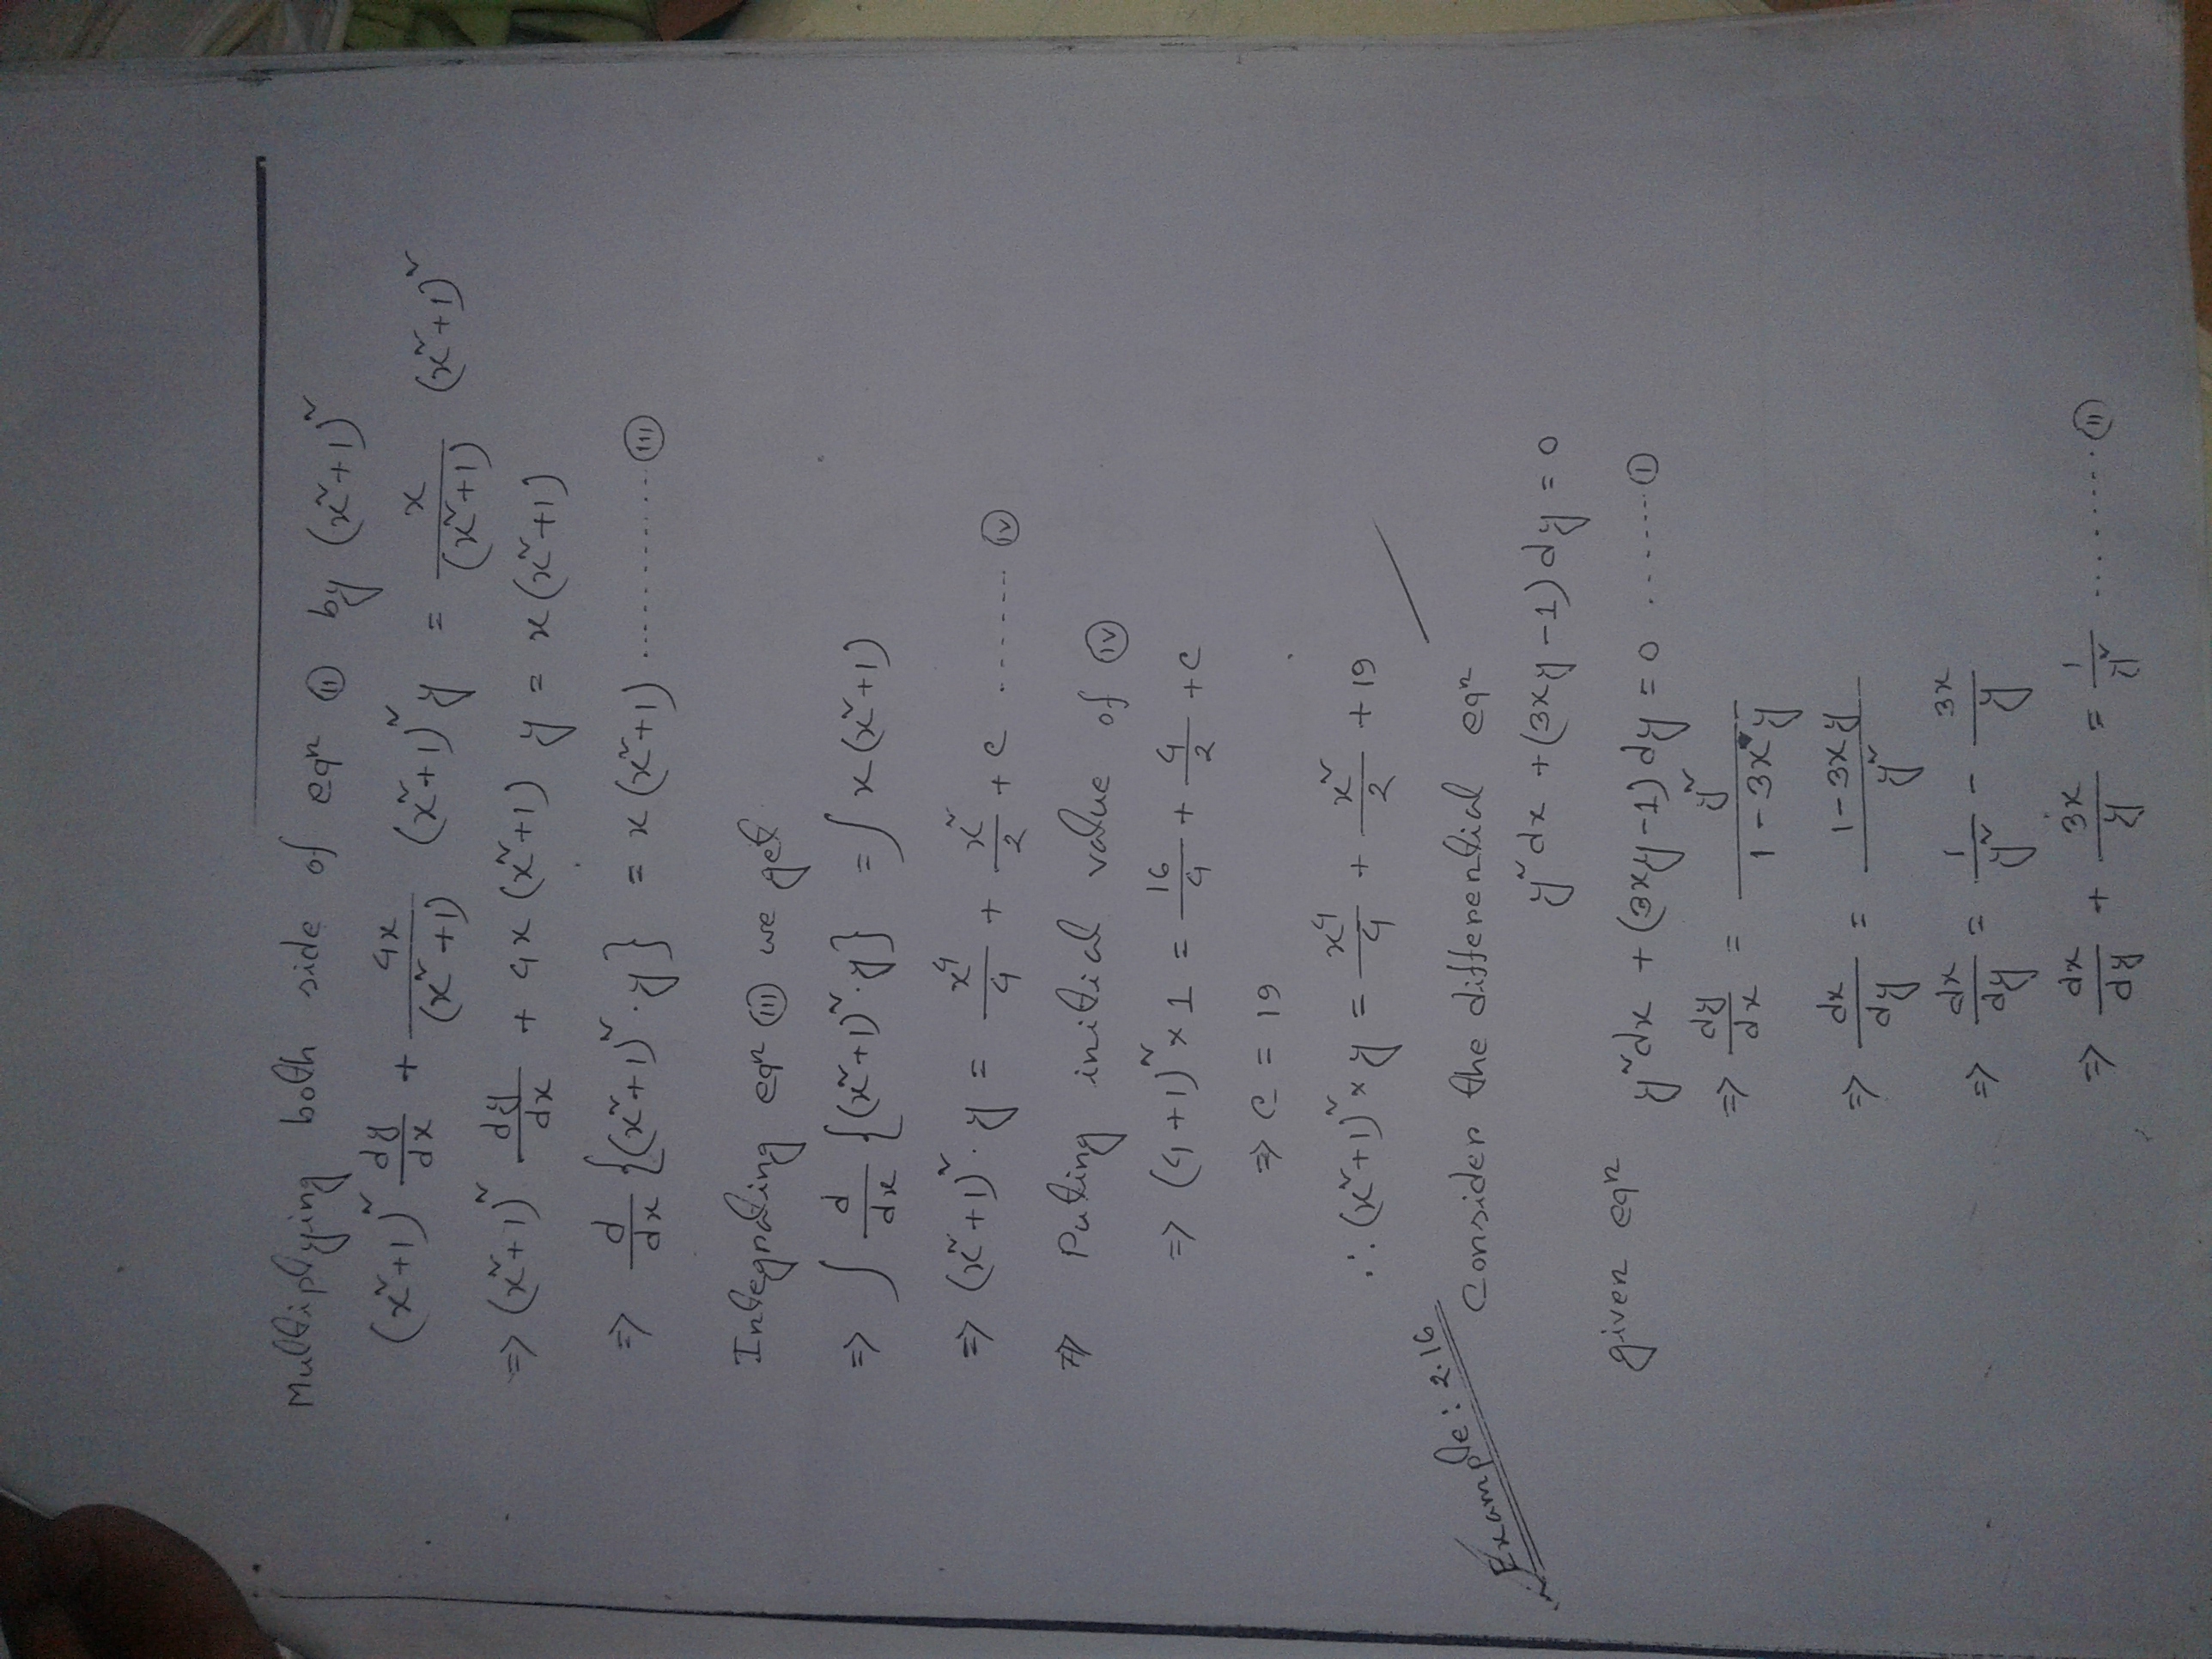 Multiplying both side of eqⁿ (ii) by (x²+1)²
(x²+1)² dy/dx + 4x/(x²+1) (x²+1)² y = x/(x²+1) (x²+1)²
⇒ (x²+1)² dy/dx + 4x(x²+1) y = x(x²+1)
⇒ d/dx {(x²+1)².y} = x(x²+1) ............ (iii)
Integrating eqⁿ (iii) we get
⇒ ∫ d/dx {(x²+1)².y} = ∫ x(x²+1)
⇒ (x²+1)².y = x⁴/4 + x²/2 + c ....... (iv)
⇒ Puting initial value of (iv)
⇒ (4+1)² × 1 = 16/4 + 4/2 + c
⇒ c = 19
∴ (x²+1)² × y = x⁴/4 + x²/2 + 19
Example: 2.16
Consider the differential eqⁿ
y²dx + (3xy-1)dy = 0
given eqⁿ y²dx + (3xy-1)dy = 0 ....... (i)
⇒ dy/dx = y²/(1-3xy)
⇒ dx/dy = (1-3xy)/y²
⇒ dx/dy = 1/y² - 3x/y
⇒ dx/dy + 3x/y = 1/y² ......... (ii)